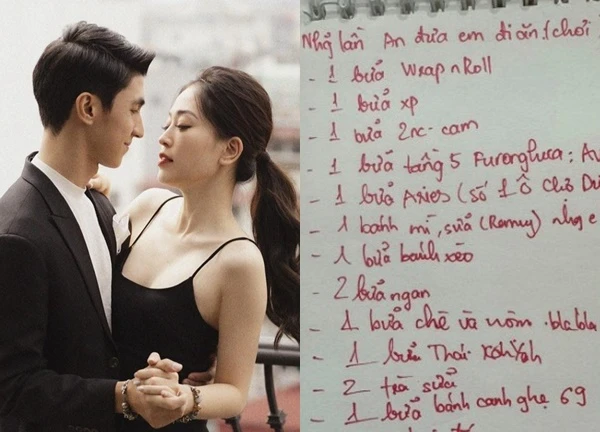 Nhg lần An đưa em đi ăn/chơi
- 1 bữa Wrap n Roll
- 1 bữa xp
- 1 bữa 2nc-cam
- 1 bữa tầng 5
- 1 bữa Aries (số 1 Ô Chợ
- 1 bánh mì, sữa (Remy) nhg e
- 1 bữa bánh xèo
- 2 bữa ngan
- 1 bữa chè và nộm . blabla
- 1 bữa Thái
- 2 trà sữa
- 1 bữa bánh canh ghẹ 69